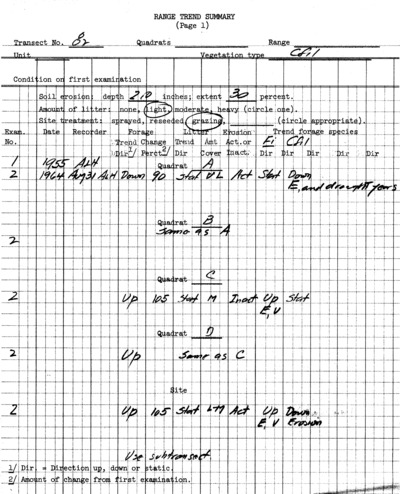 RANGE TREND SUMMARY
(Page 1)
Transect No. 82 Quadrats Range
Unit Vegetation type Cfil
Condition on first examination
Soil erosion: depth inches; extent 30 percent.
Amount of litter: none, light, moderate, heavy (circle one).
Site treatment: sprayed, reseeded, grazing, (circle appropriate).
Exam. Date Recorder Forage Litter Erosion Trend forage species
No. Trend Change Trend Amt Act.or Ei Cfil
Dir 1/ Perct 2/ Dir Cover Inact. Dir Dir Dir Dir Dir
Quadrat A
1 1955 ALH
2 1964 Aug 31 ALH Down 90 Stat VL Act Stat Down
E, and drought years
Quadrat B
Same as A
2
Quadrat C
2 Up 105 Stat M Inact Up Stat
E, V
Quadrat D
2 Up Same as C
Site
2 Up 105 Stat LTM Act Up Down
E, V Erosion
Use subtransect
1/ Dir. = Direction up, down or static.
2/ Amount of change from first examination.